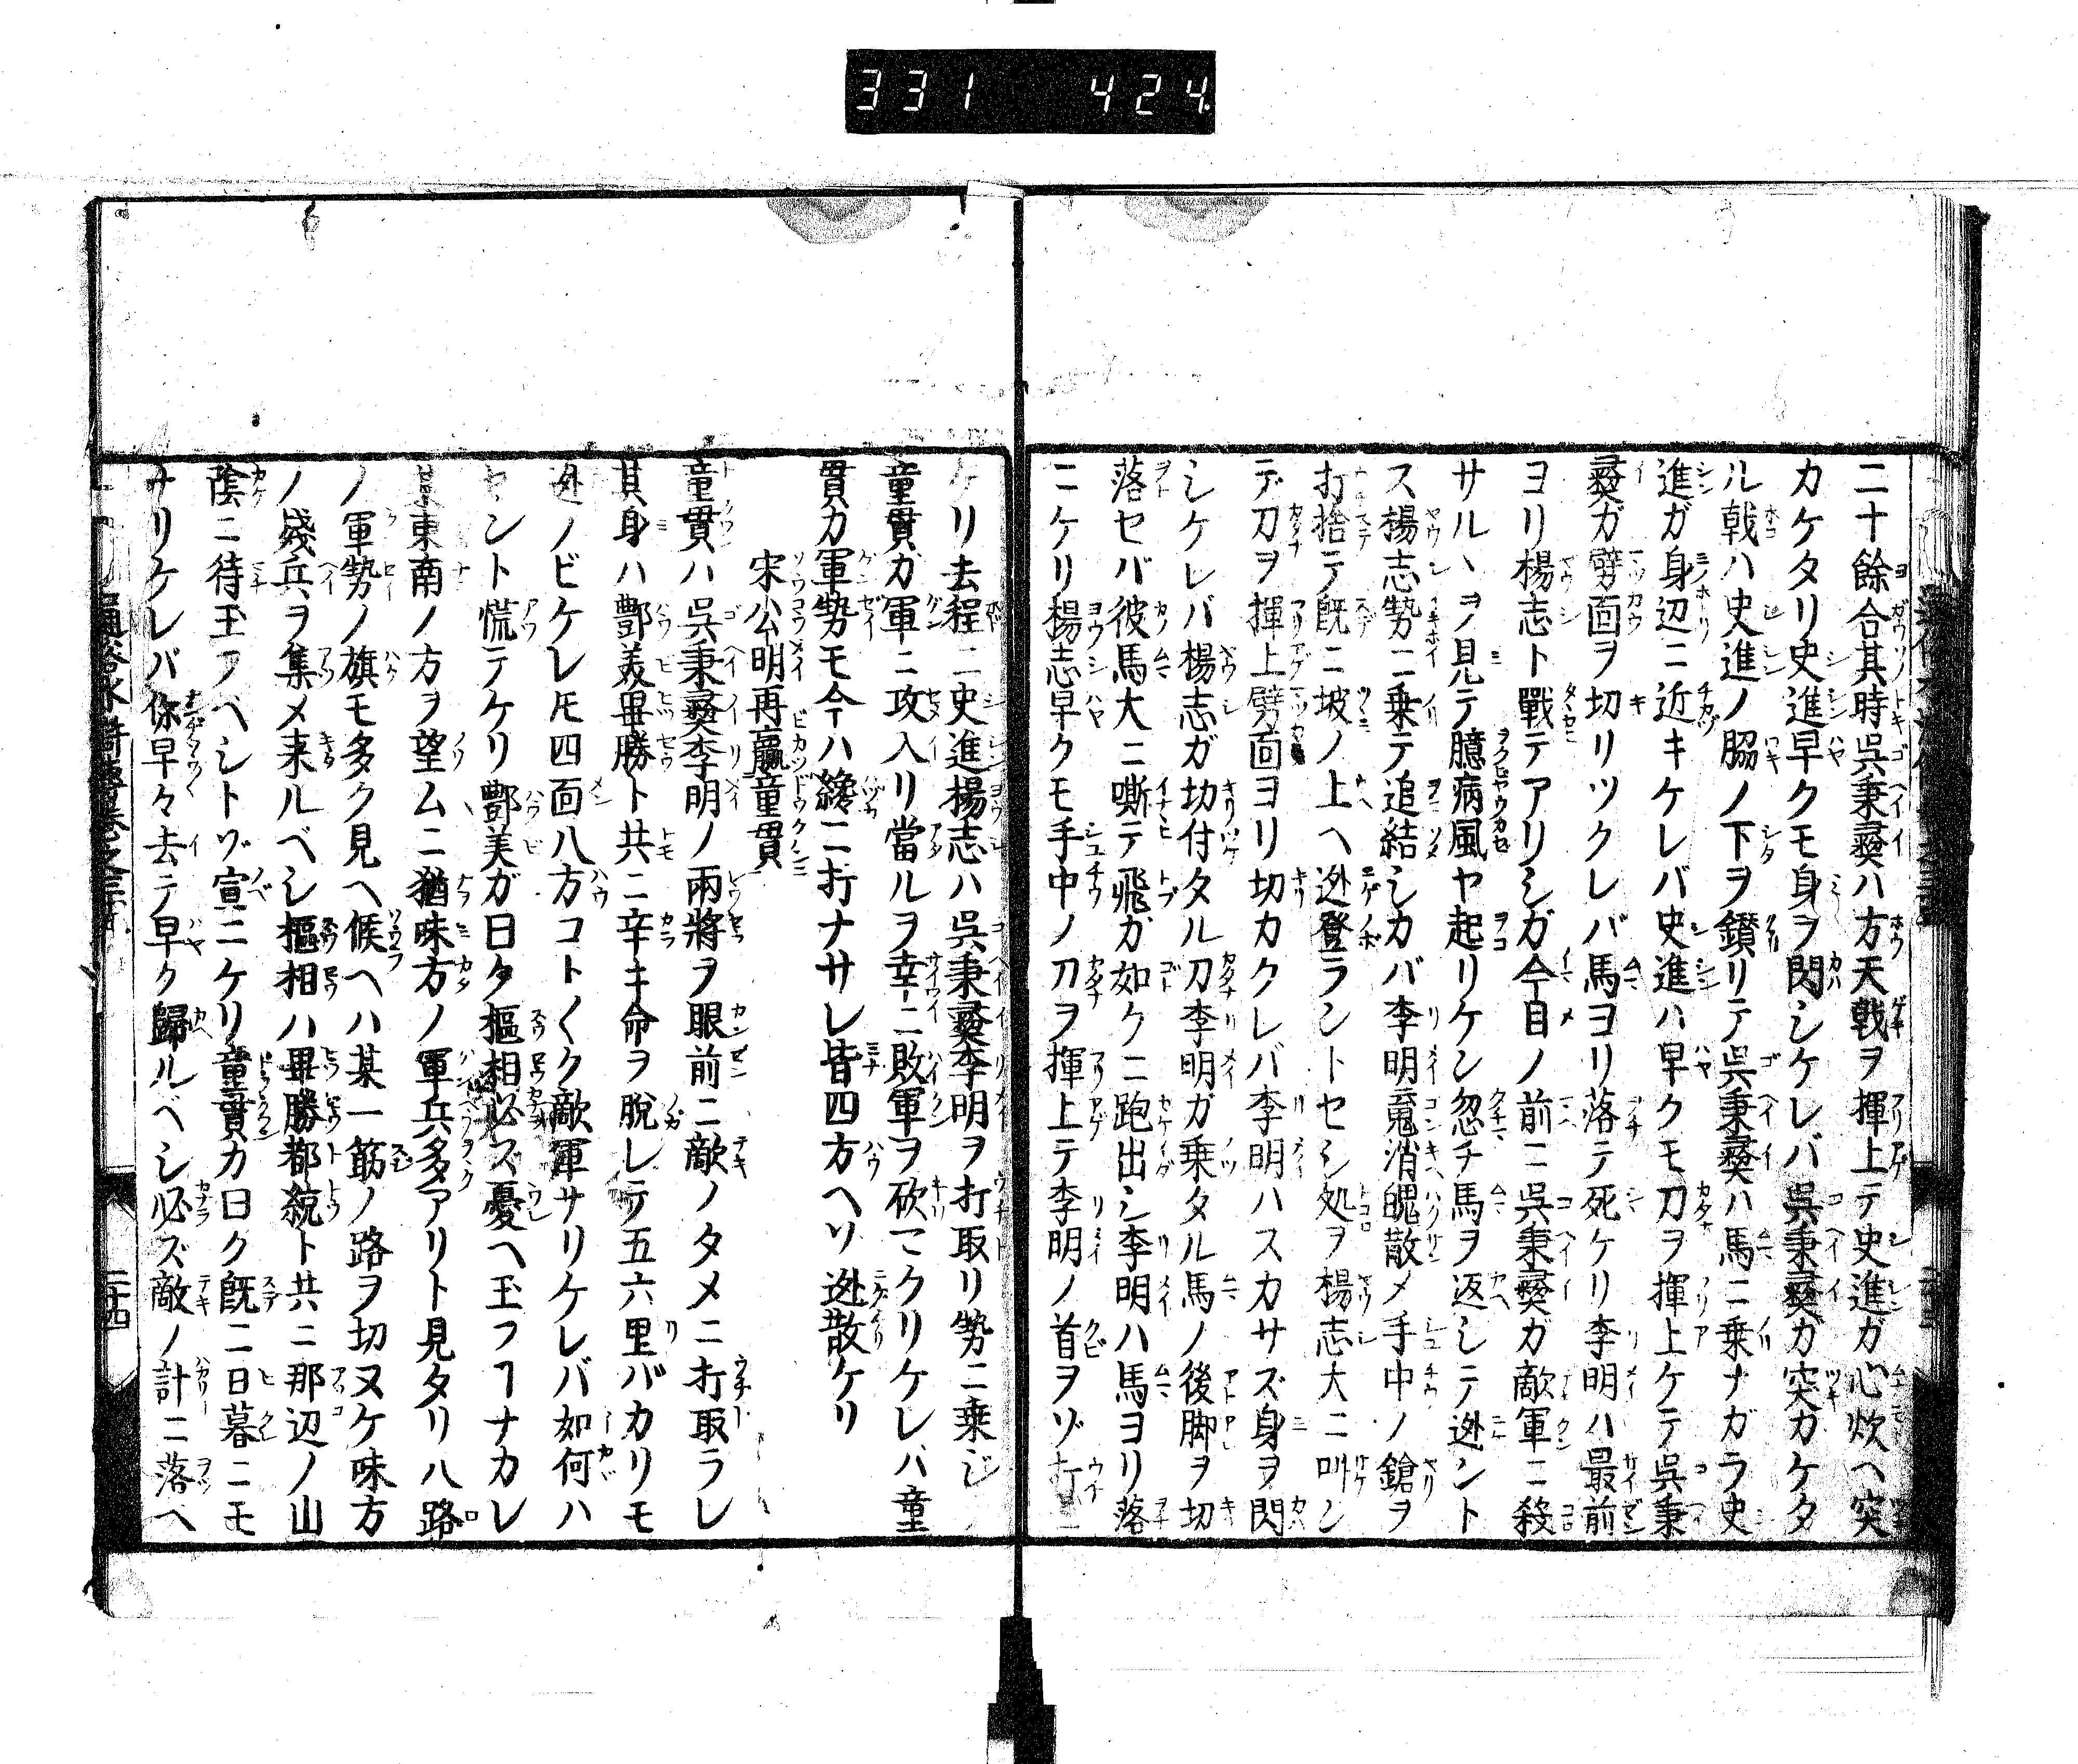 331 424.
二十餘合其時呉秉彛ハ方天戟ヲ揮上テ史進ガ心炊ヘ突
カケタリ史進早クモ身ヲ閃シケレバ呉秉彛カ突カケタ
ル戟ハ史進ノ脇ノ下ヲ鑚リテ呉秉彛ハ馬ニ乗ナガラ史
進ガ身辺ニ近キケレバ史進ハ早クモ刀ヲ揮上ケテ呉秉
彛ガ劈面ヲ切リツクレバ馬ヨリ落テ死ケリ李明ハ最前
ヨリ楊志ト戰テアリシガ今目ノ前ニ呉秉彛ガ敵軍ニ殺
サルヽヲ見テ臆病風ヤ起リケン忽チ馬ヲ返シテ迯ント
ス楊志勢ニ乗テ追結シカバ李明䰟消魄散メ手中ノ鎗ヲ
打捨テ既ニ坡ノ上ヘ迯登ラントセシ処ヲ楊志大ニ呌ン
デ刀ヲ揮上劈面ヨリ切カクレバ李明ハスカサズ身ヲ閃
シケレバ楊志ガ切付タル刀李明ガ乗タル馬ノ後脚ヲ切
落セバ彼馬大ニ嘶テ飛ガ如クニ跑出シ李明ハ馬ヨリ落
ニケリ楊志早クモ手中ノ刀ヲ揮上テ李明ノ首ヲゾ打
ケリ去程ニ史進楊志ハ呉秉彛李明ヲ打取リ勢ニ乗ジ
童貫ガ軍ニ攻入リ當ルヲ幸ニ敗軍ヲ砍マクリケレバ童
貫カ軍勢モ今ハ纔ニ打ナサレ皆四方ヘソ迯散ケリ
宋公明再贏童貫
童貫ハ呉秉彛李明ノ兩將ヲ眼前ニ敵ノタメニ打取ラレ
其身ハ酆美畢勝ト共ニ辛キ命ヲ脱レテ五六里バカリモ
迯ノビケレ𪜈四面八方コト〱ク敵軍サリケレバ如何ハ
セント慌テケリ酆美ガ曰タ樞相必ス憂ヘ玉フヿナカレ
某東南ノ方ヲ望ムニ猶味方ノ軍兵多アリト見タリ八路
ノ軍勢ノ旗モ多ク見ヘ候ヘハ某一筋ノ路ヲ切ヌケ味方
ノ殘兵ヲ集メ来ルベシ樞相ハ畢勝都統ト共ニ那辺ノ山
陰ニ待玉フヘシトゾ宣ニケリ童貫カ曰ク既ニ日暮ニモ
ナリケレバ你早々去テ早ク歸ルベシ必ズ敵ノ計ニ落ヘ